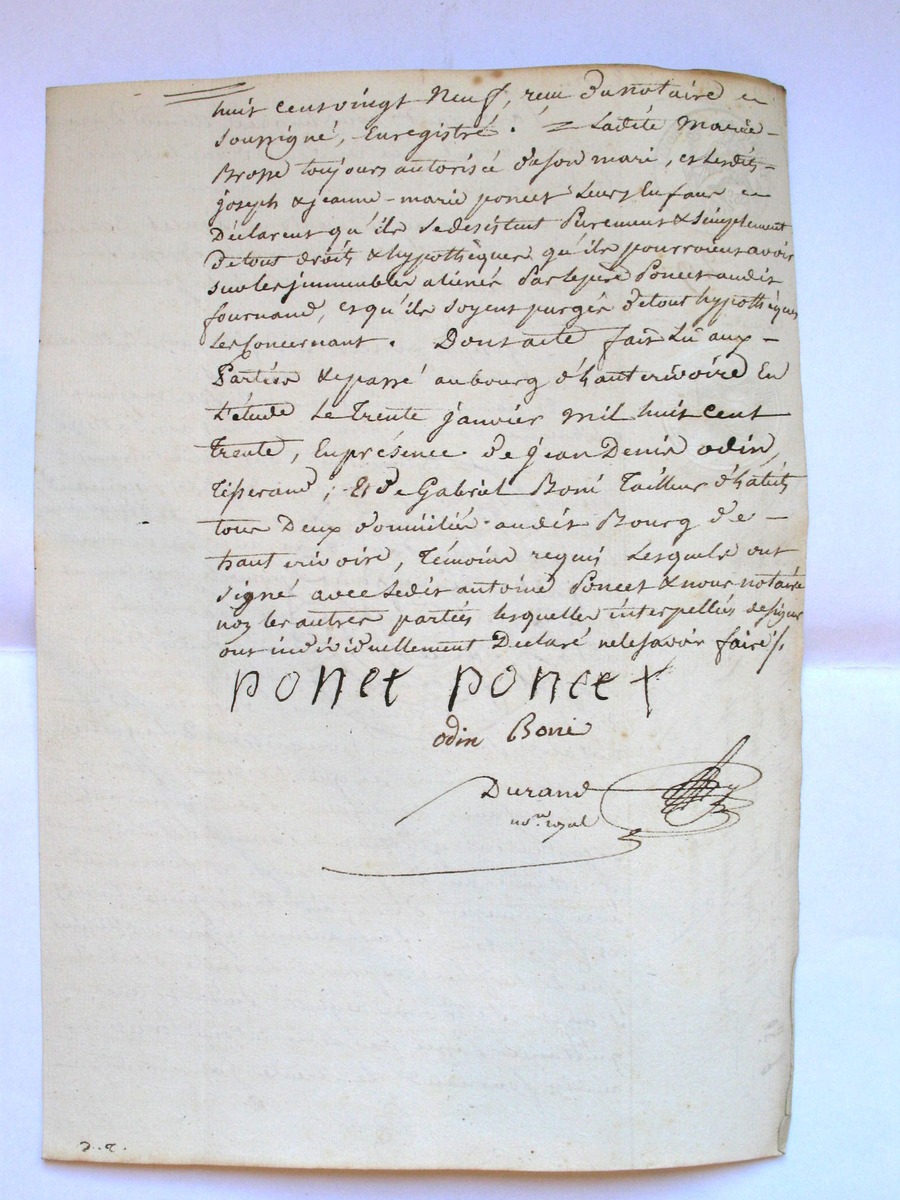 huit cent vingt Neuf, reçu du notaire
soussigné, Enregistré. = Ladite Marie-
Brosse toujours autorisée de son mari, et Lesdits-
joseph & jeanne-marie poncet Leurs Enfans
Déclarent qu'ils se desistent Purement & simplement
de tous droits & hypothèques qu'ils pourroient avoir
sur les jmmeubles aliénés Par le père Poncet audit
fournand, et qu'ils soyent purgés de tout hypothèques
Les Concernant. Dont acte fait Lû aux-
Parties & passé au bourg d'hauterivoire En
L'étude Le Trente janvier mil huit cent
Trente, En présence de jean Denis odin,
Tisserand; Et de Gabriel Boni Tailleur d'habits
tous Deux domiciliés audit Bourg de-
hauterivoire, Témoins requis Lesquels ont
signé avec Ledit antoine Poncet & nous notaire
non les autres parties lesquelles interpellées de signer
ont individuellement Déclaré ne le savoir faire/.
poncet poncet
odin Boni
Durand
not.re royal